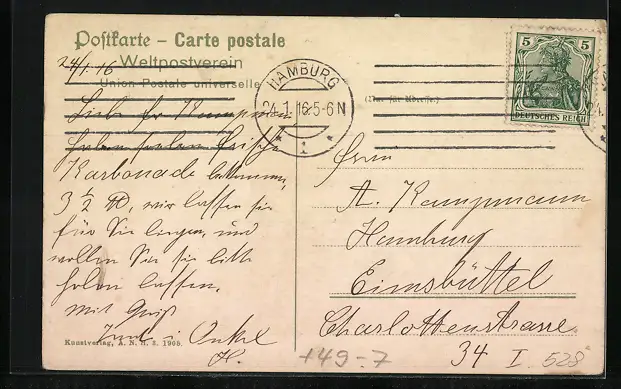 Postkarte – Carte postale
Weltpostverein
Union Postale universelle
24/1. 16
HAMBURG
24.1.16.5-6N
1
5 5
DEUTSCHES REICH
Liebe Fr Kampmann
haben soeben frische
Karbonade bekommen,
3 ½ ℔, wir lassen sie
für Sie liegen, und
wollen Sie sie bitte
holen lassen.
mit Gruß
Onkel
H.
Herrn
A. Kampmann
Hamburg
Eimsbüttel
Charlottenstrasse
34 I
528
149-7
Kunstverlag, A. N. H. S. 1908.